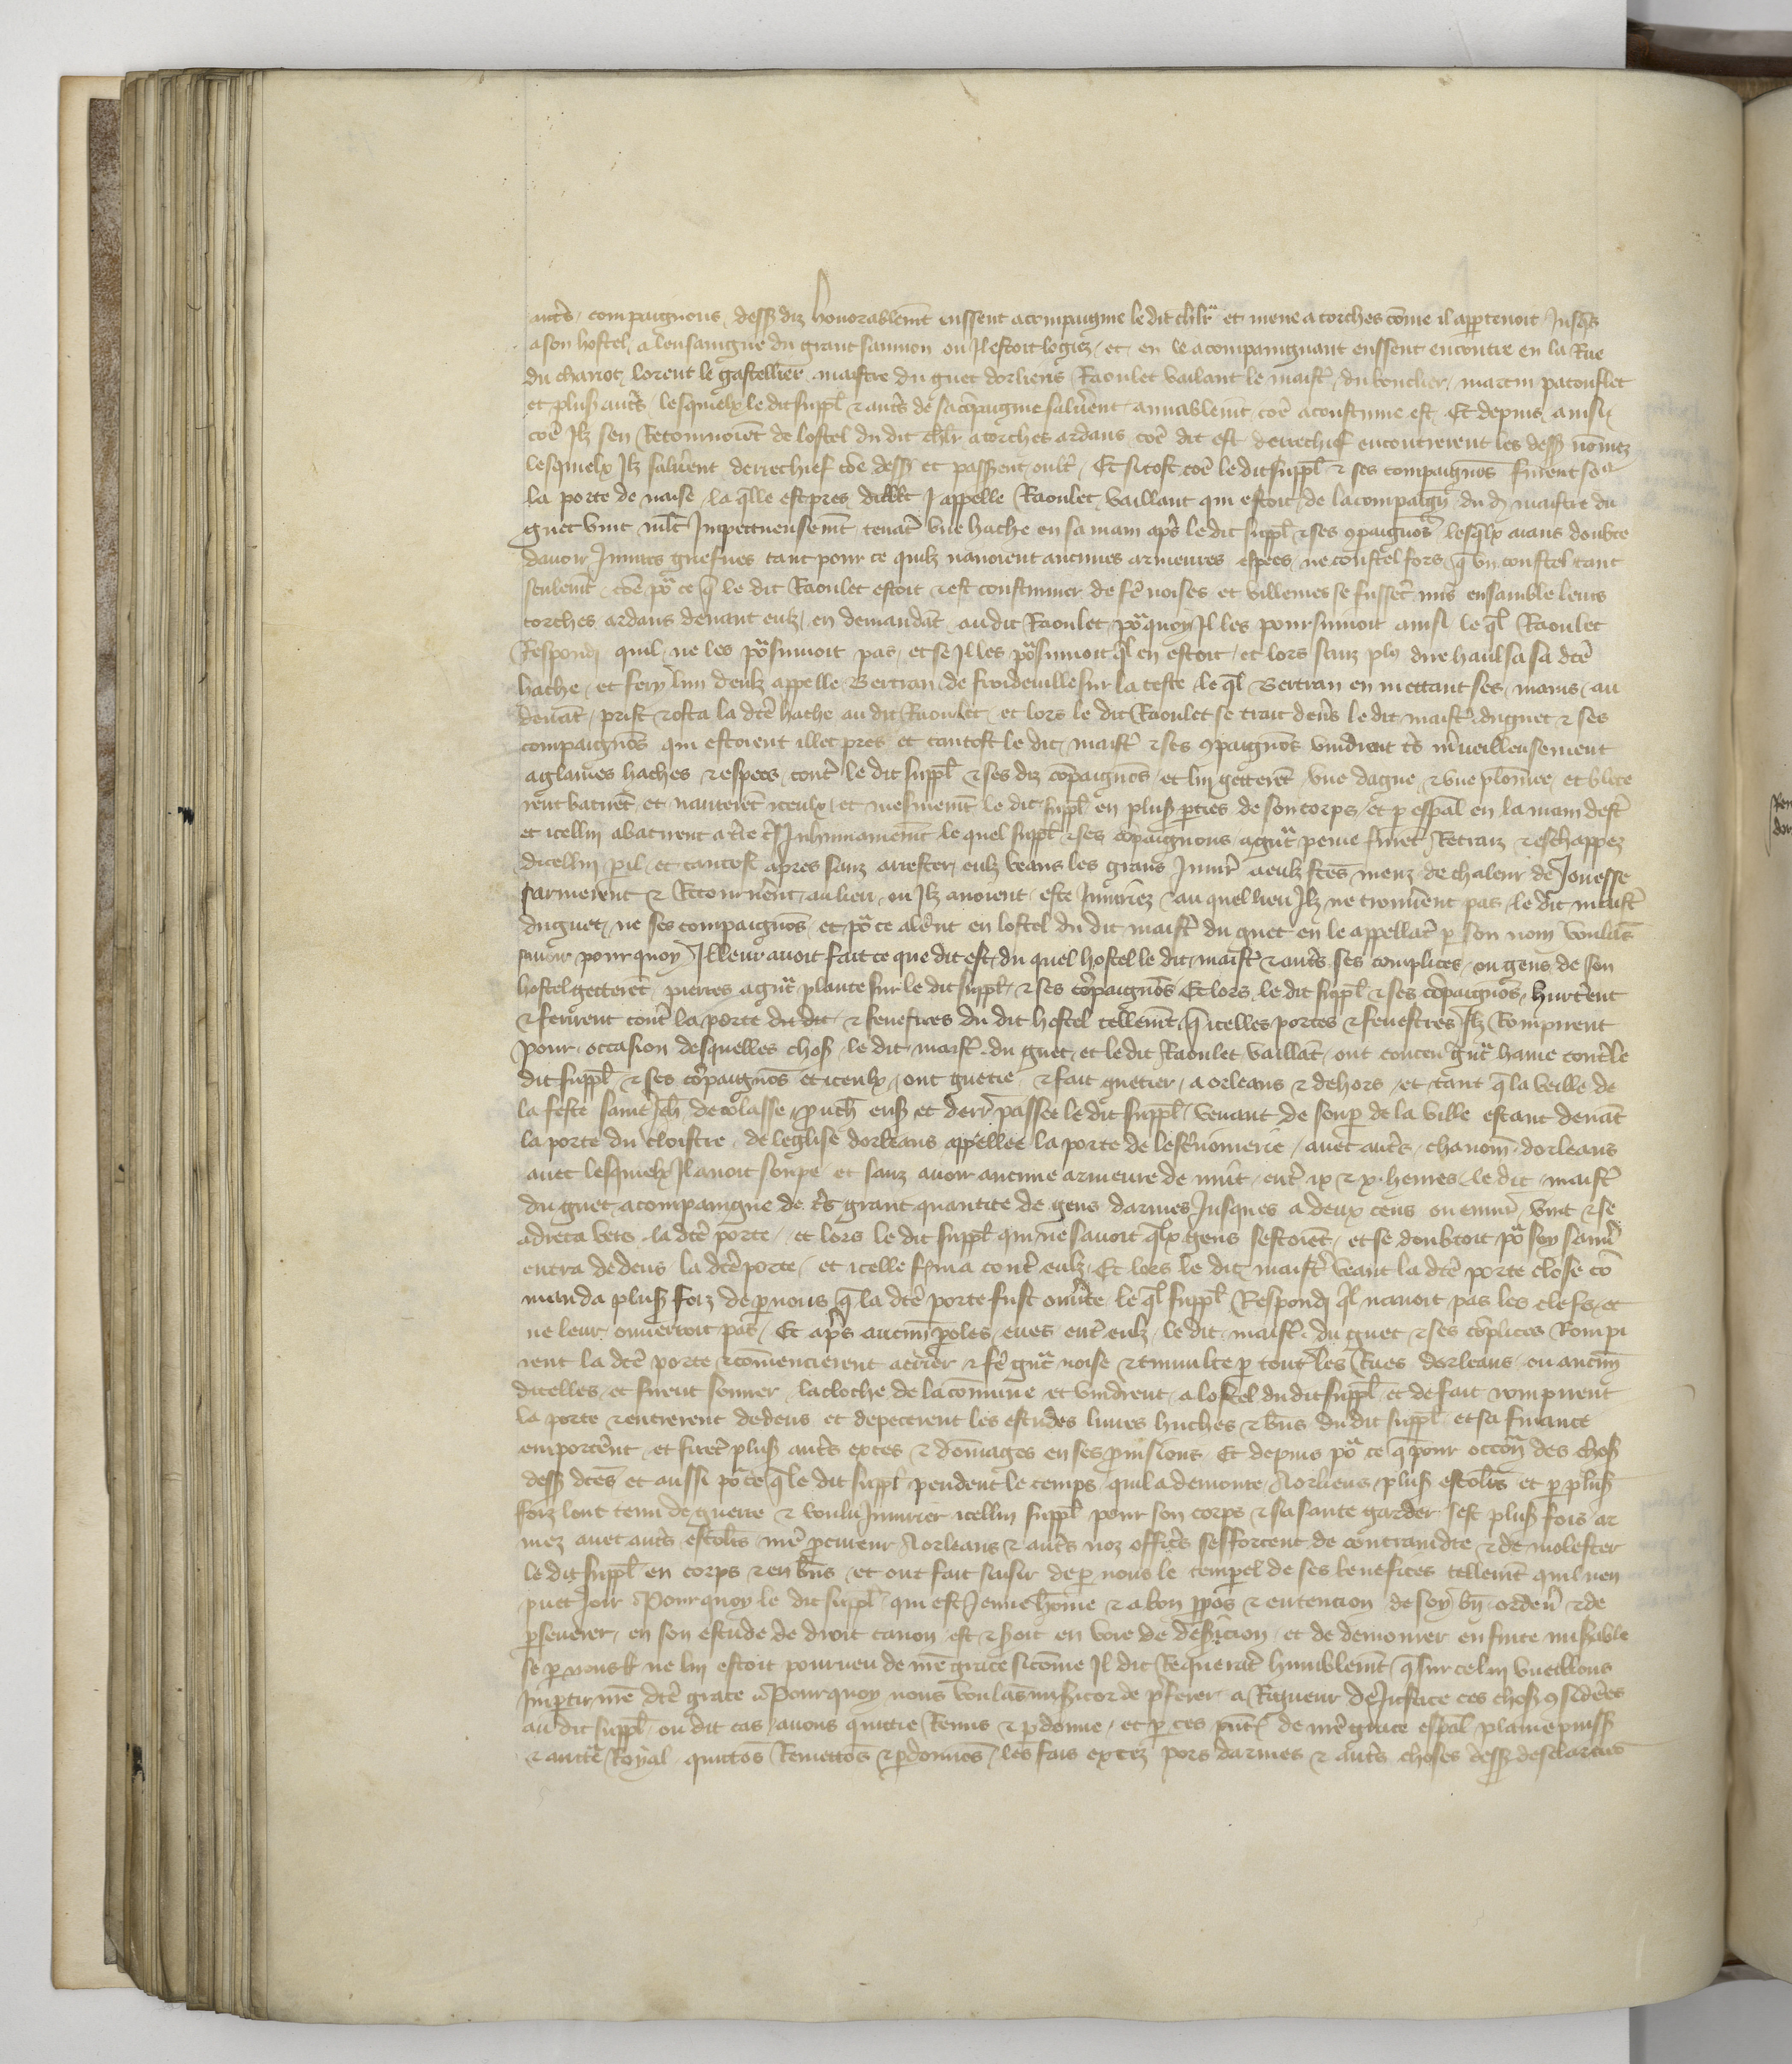 autˢ compaignons dessꝰdiz honorablemt eussent acompaigne le dit chlr et mene a torches cōme il appartenoit Jusqs
a son hostel a lensaingne du grant saumon ou Il estoit logiez et en le acompaingnant eussent encontre en la Rue
du chariot lorent le gastellier maistre du guet dorliens Raoulet vailant le maistr du bouclier martin patouflet
et plusꝰ autˢ lesquielx le dit suppl̄ ⁊ autˢ de sa cōpaignie saluerent amiablemt cōe acoustume est Et depuis ainsi
cōe Ilz sen Retornoient de lostel du dit chlr a torches ardans cōe dit est derrechief encontrerent les dessꝰ nōmez
lesquielx Ilz saluerent derrechief cōe dessꝰ et passerent oultr Et si tost cōe le dit suppl̄ ⁊ ses compaignons furent sur
la porte de la qlle est pres dillec J appelle Raoulet vaillant qui estoit de la compaign du d maistre du
guet vint mlt Impetueusemt tenant vne hache en sa main apˢ le dit suppl̄ ⁊ ses ꝯpaignons lesqlx aians doubte
davoir Jniures griefues tant pour ce quilz nauoient aucunes armeures espees ne coustel fors q̄ vn coustel tant
seulemt cōe po͛ ce q̄ le dit Raoulet estoit ⁊ est coustumier de fe noises et villenies se fussent mis ensamble leurs
torches ardans deuant eulz en demandāt au dit Raoulet po͛quoy Il les poursuiuoit ainsi le ql Raoulet
Respondi quil ne les po͛suiuoit pas et se Il les po͛suiuoit ql en estoit et lors sanz plꝰ dire haulsa sa dcē
hache et fery lun deulz appelle Bertran de froideuille sur la teste le ql Bertran en mettant ses mains au
deuāt prist ⁊ osta la dcē hache au dit Raoulet et lors le dit Raoulet se trait deuˢ le dit maistr du guet ⁊ ses
compaignōs qui estoient illec pres et tantost le dit maistr ⁊ ses ꝯpaignōs vindrent tˢ mˢueilleusement
a glaiues haches ⁊ espees contr le dit suppl̄ ⁊ ses diz cōpaignōs et luy getterēt vne dague ⁊ vne plōmee et blece
rent batirēt et naurerēt iceulx et mesmemt le dit suppl̄ en plusꝰ pties de son corps et p espal en la main destr
et icelluy abatirent a tˢre tˢ Jnhumainemt le quel suppl̄ ⁊ ses cōpaignons a gnt peine furēt Retraiz ⁊ eschappez
dicelluy pil et tantost apres sanz arrester eulz veans les grans Jniur a eulz fcēs meuz de chaleur de Jonesse
sarmerent ⁊ Retournerent au lieu ou Ilz auoient este Jniuriez ⁊ au quel lieu Ilz ne trouuerent pas le dit maistr
du guet ne ses compaignōs et po͛ ce alerent en lostel du dit maistr du guet en le appellāt p son nom voulās
sauoir pour quoy Il leur auoit fait ce que dit est du quel hostel le dit maistr ⁊ autˢ ses complices ou gens de son
hostel getterēt pierres a gnt plante sur le dit suppl̄ ⁊ ses cōpaignōs Et lors le dit suppl̄ ⁊ ses cōpaignons hurterent
⁊ ferirent contr la porte du dit ⁊ fenestres du dit hostel tellemt q̄ icelles portes ⁊ fenestres Ilz Rompirent
pour occasion desquelles chosꝰ le dit maistr du guet et le dit Raoulet vaillāt ont conceu gnt haine contr le
dit suppl̄ ⁊ ses cōpaignōs et iceulx ont guetie ⁊ fait guetier a orleans ⁊ dehors et tant q̄ la veille de
la feste saint Jeh decolasse p̄uch ensꝰ et derr passee le dit suppl̄ venant de soup de la ville estant deuāt
la porte du cloistre de leglise dorleans appellee la porte de lescriuinerie auec autˢ chanoin dorleans
auec lesquielx Il auoit soupe et sanz auoir aucune armeure de nuit entr ix ⁊ x heures le dit maistr
du guet acompaingne de tˢ grant quantite de gens darmes Jusques a deux cens ou enuir vint ⁊ se
adreca vers la dcē porte et lors le dit suppl̄ qui ne sauoit qlx gens sestoiēt et se doubtoit po͛ soy sauuer
entra dedens la dcē porte et icelle fˢma contr eulz Et lors le dit maistr veant la dcē porte close cō
manda plusꝰ foiz de p nous q̄ la dcē porte fust ouuˢte le ql suppl̄ Respondi ql nauoit pas les clefs et
ne leur ouuertoit pas Et apˢ aucun poles eues entr eulz le dit maistr du guet ⁊ ses cōplices Rompi
rent la dcē porte ⁊ cōmencierent a crier ⁊ fe gnt noise ⁊ tumulte p tout les Rues dorleans ou aucun
dicelles et firent sonner la cloche de la cōmune et vindrent a lostel du dit suppl̄ et de fait rompirent
la porte ⁊ entrerent dedens et depecerent les estudes liures huches ⁊ bns du dit suppl̄ et sa finance
emporterent et firēt plusꝰ autˢ exces ⁊ dōmages en ses prouisions Et depuis po͛ ce q̄ pour occōn des chosꝰ
dessꝰ dcēs et aussi po͛ ce q̄ le dit suppl̄ pendent le temps quil a demoure a orliens plusꝰ escolrs et p plusꝰ
foiz lont tenu de guerre ⁊ voulu Jniurier icelluy suppl̄ pour son corps ⁊ sa sante garder sest plusꝰ fois ar
mez auec autˢ escolrs nrē pcureur a orleans ⁊ autˢ noz officˢ sefforcent de contraindre ⁊ de molester
le dit suppl̄ en corps ⁊ en bns et ont fait saisir de p nous le temporel de ses benefices tellemt quil nen
puet Joir Pourquoy le dit suppl̄ qui est Jeune hōme ⁊ a bon ppos ⁊ entencion de soy bn ordener ⁊ de
pseuerer en son estude de droit canon est ⁊ soit en voie de desercion et de demourer en fuite misable
se p nous ne luy estoit pourueu de nrē grace sicōme Il dit Requerāt humblemt q̄ sur ce luy vueillons
Jmptir nrē dcē grace Pourquoy nous voulās misicorde pferer a Rigueur de Justice ces chosꝰ ꝯsiderees
au dit suppl̄ ou dit cas auons quictie Remis ⁊ pdonne et p ces pnt de nrē grace espal plaine puissꝰ
⁊ auctē Royal quictōs Remettōs ⁊ pdonnōs les fais excez pors darmes ⁊ autˢ choses dessꝰ desclarees